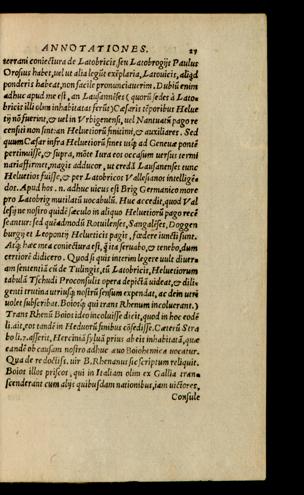 ANNOTATIONES. 27
terrani coniectura de Latobricis seu Latobrogijs Paulus
Orosius habet, uel ut alia legūt exēplaria, Latouicis, aliqd
ponderis habeat, non facile pronunciauerim. Dubiū enim
adhuc apud me est, an Lausannēses (quorū sedes à Lato-
bricis illi olim inhabitatas ferūt) Cæsaris tēporibus Helue
tij nō fuerint, & uel in Vrbigenensi, uel Nantuatū pago re
censiti non sint: an Heluetiorū finitimi, & auxiliares. Sed
quum Cæsar infra Heluetiorū fines usq; ad Geneuæ pontē
pertinuisse, & supra, mōte Iura eos occasum uersus termi
nari affirmet, magis adducor, ut credā Lausanenses tunc
Heluetios fuisse, & per Latobricos Vallesanos intelligē
dos. Apud hos .n. adhuc uicus est Brig Germanico more
pro Latobrig mutilatū uocabulū. Huc accedit, quod Val
lesij ne nostro quidē sæculo in aliquo Heluetiorū pago recē
seantur, sed quēadmodū Rotuilenses, Sangalēses, Doggen
burgij et Lepontij Heluetiicis pagis, fœdere iuncti sunt.
Atq; hæc mea coniectura est, q̄ ita seruabo, & tenebo, dum
certiorē didicero. Quod si quis interim legere uult diuur
am sententiā eū de Tulingis, tū Latobricis, Heluetiorum
tabulā Tschudi Proconsulis opera depictā uideat, & dili
genti trutina utriusq; nostrū sensum expendat, ac dein utri
uolet subscribat. Boiosq; qui trans Rhenum incoluerant.)
Trans Rhenū Boios ideo incoluisse dicit, quod in hoc eodē
li. ait, eos tandē in Heduorū finibus cōsedisse. Cæterū Stra
bo li. 7. asserit, Herciniā syluā prius ab eis inhabitatā, quæ
eandē ob causam nostro adhuc æuo Boiohemica uocatur.
Qua de re doctiss. uir B. Rhenanus sic scriptum reliquit.
Boios illos priscos, qui in Italiam olim ex Gallia tran-
scenderant cum alijs quibusdam nationibus, iam uictores,
Consule